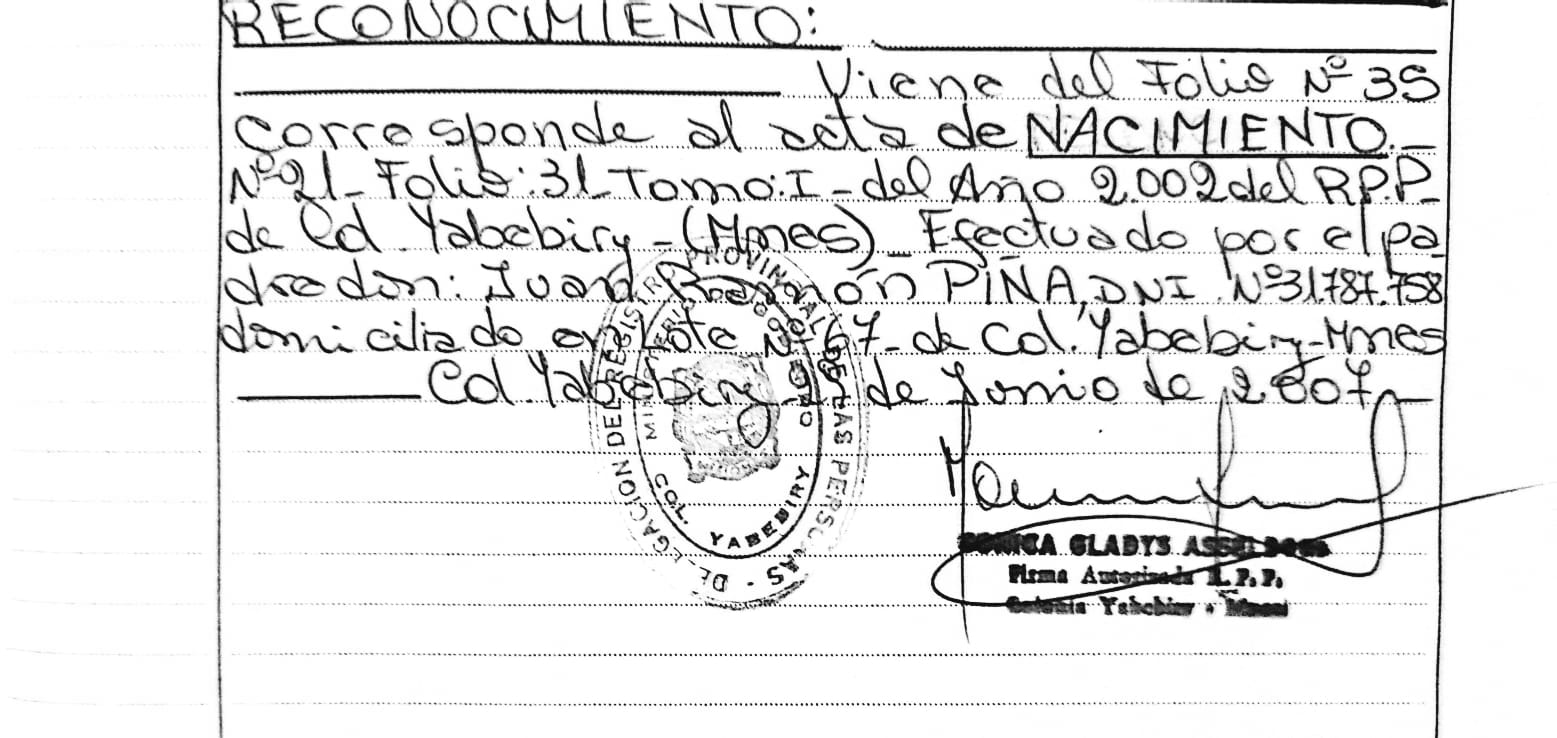 RECONOCIMIENTO:
Viene del Folio Nº 35
Corresponde al acta de NACIMIENTO._
Nº21_ Folio: 31_Tomo: I_del Año 2.002 del R.P.P_
de Col. Yabebiry_(Mnes)_ Efectuado por el pa
dre don: Juan Ramón PIÑA, DNI Nº31.787.758
domiciliado en Lote Nº 67_ de Col. Yabebiry-Mnes
Col. Yabebiry de Junio de 2007_
DELEGACION DEL REGISTRO PROVINCIAL DE LAS PERSONAS
MINISTERIO
COL. YABEBIRY
GLADYS
Firma Autorizada R. P. P.
Colonia Yabebiry - Mnes